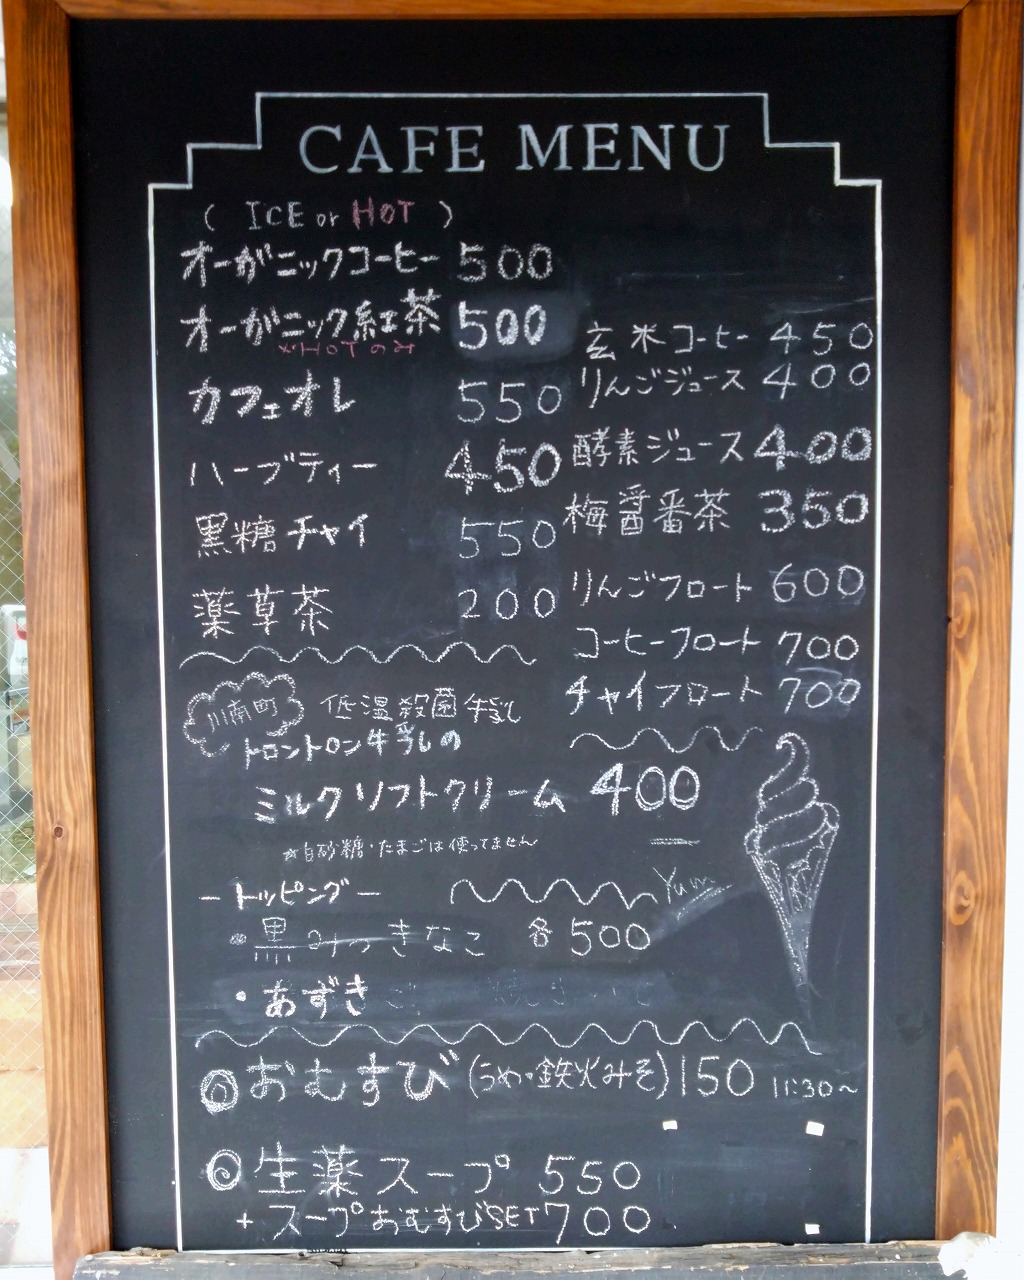 CAFE MENU
( ICE or HOT )
オーガニックコーヒー 500
オーガニック紅茶 500
※HOTのみ
カフェオレ 550
ハーブティー 450
黒糖チャイ 550
薬草茶 200
玄米コーヒー 450
りんごジュース 400
酵素ジュース 400
梅醤番茶 350
りんごフロート 600
コーヒーフロート 700
チャイフロート 700
川南町 低温殺菌牛乳
トロントロン牛乳の
ミルクソフトクリーム 400
☆白砂糖・たまごは使ってません
ートッピングー
Yum
・黒みつきなこ 各500
・あずき
◎おむすび(うめ・鉄火みそ)150 11:30〜
◎生薬スープ 550
+スープおむすびSET700